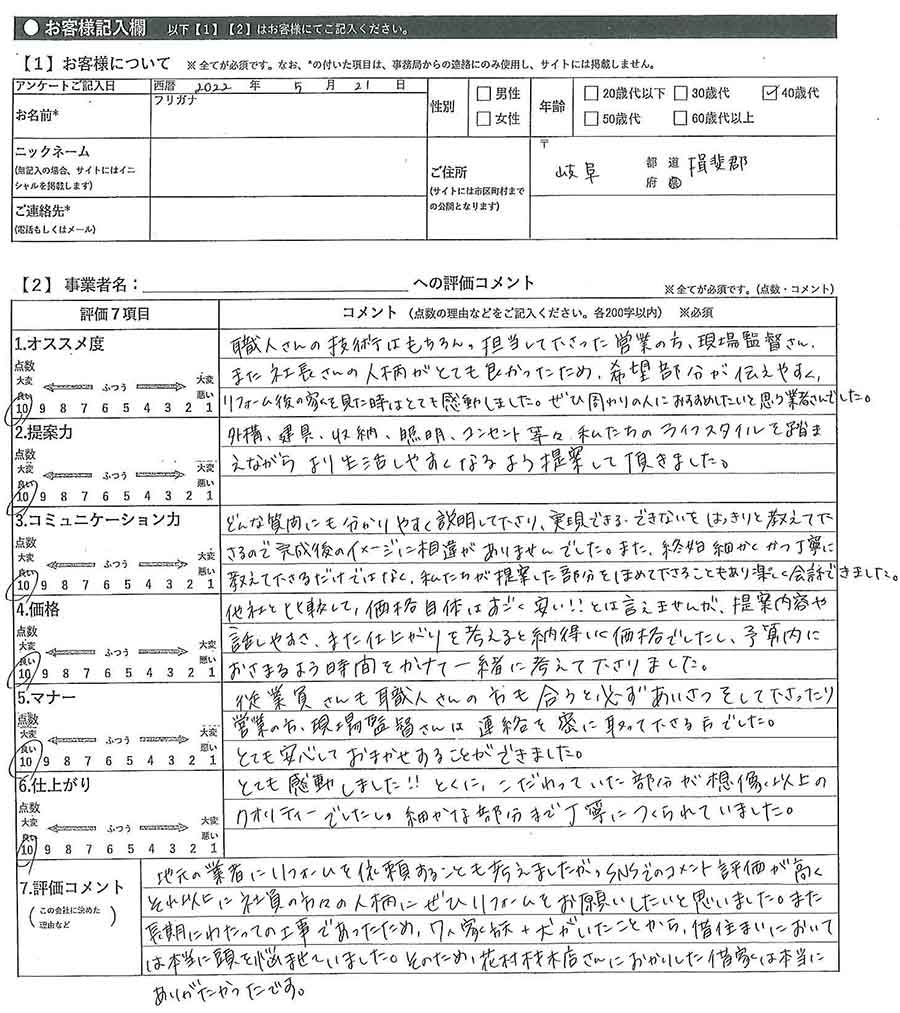 ● お客様記入欄 以下【1】【2】はお客様にてご記入ください。
【1】お客様について ※全てが必須です。なお、*の付いた項目は、事務局からの連絡にのみ使用し、サイトには掲載しません。
アンケートご記入日 西暦 2022 年 5 月 21 日
お名前* フリガナ
性別 □男性 □女性
年齢 □20歳代以下 □30歳代 ☑40歳代
□50歳代 □60歳代以上
ニックネーム
(無記入の場合、サイトにはイニシャルを掲載します)
ご住所
(サイトには市区町村までの公開となります)
〒
岐阜 都道府県 揖斐郡
ご連絡先*
(電話もしくはメール)
【2】事業者名: への評価コメント ※全てが必須です。(点数・コメント)
評価7項目 コメント (点数の理由などをご記入ください。各200字以内) ※必須
1.オススメ度
点数
大変良い ふつう 大変悪い
10 9 8 7 6 5 4 3 2 1
職人さんの技術はもちろん、担当して下さった営業の方、現場監督さん、
また社長さんの人柄がとても良かったため、希望部分が伝えやすく、
リフォーム後の家を見た時はとても感動しました。ぜひ周わりの人におすすめしたいと思う業者さんでした。
2.提案力
点数
大変良い ふつう 大変悪い
10 9 8 7 6 5 4 3 2 1
外構、建具、収納、照明、コンセント等々、私たちのライフスタイルを踏ま
えながら より生活しやすくなるよう提案して頂きました。
3.コミュニケーション力
点数
大変良い ふつう 大変悪い
10 9 8 7 6 5 4 3 2 1
どんな質問にも分かりやすく説明して下さり、実現できる・できないをはっきりと教えて下
さるので完成後のイメージに相違がありませんでした。また、終始細かくかつ丁寧に
教えて下さるだけではなく、私たちが提案した部分をほめて下さることもあり楽しく会話できました。
4.価格
点数
大変良い ふつう 大変悪い
10 9 8 7 6 5 4 3 2 1
他社と比較して、価格自体はすごく安い!!とは言えませんが、提案内容や
話しやすさ、また仕上がりを考えると納得いく価格でしたし、予算内に
おさまるよう時間をかけて一緒に考えて下さりました。
5.マナー
点数
大変良い ふつう 大変悪い
10 9 8 7 6 5 4 3 2 1
従業員さんも職人さんの方も 合うと必ずあいさつをして下さったり
営業の方、現場監督さんは 連絡を密に取って下さる方でした。
とても安心しておまかせすることができました。
6.仕上がり
点数
大変良い ふつう 大変悪い
10 9 8 7 6 5 4 3 2 1
とても感動しました!! とくに、こだわっていた部分が想像以上の
クオリティーでしたし。細かな部分まで丁寧につくられていました。
7.評価コメント
(この会社に決めた理由など)
地元の業者にリフォームを依頼することも考えましたが、SNSでのコメント評価が高く
それ以上に社員の方々の人柄にぜひリフォームをお願いしたいと思いました。また
長期にわたっての工事であったため、7人家族+犬がいたことから、借住まいにおいて
は本当に頭を悩ませていました。そのため、花村材木店さんにおかりした借家は本当に
ありがたかったです。